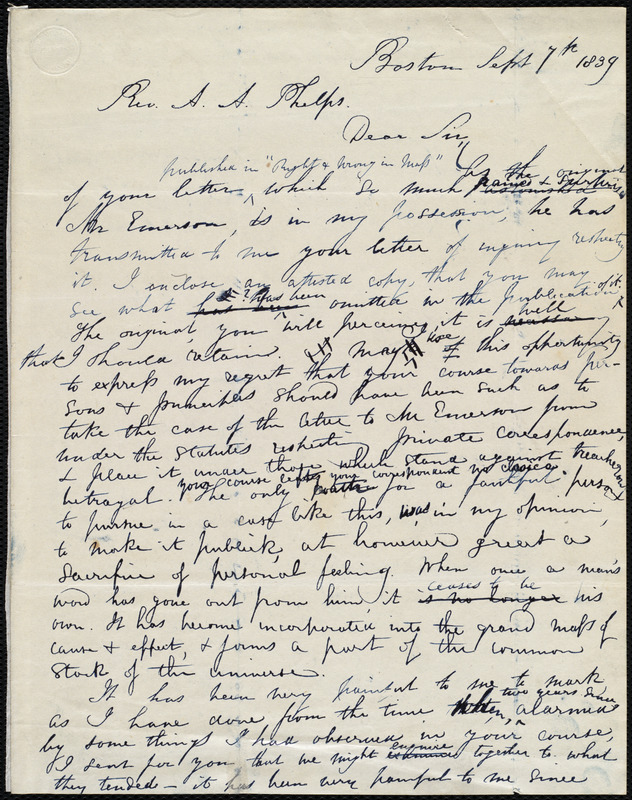 Boston Sept 7th 1839
Rev. A. A. Phelps.
Dear Sir,
published in "Right & Wrong in Mass"
As the original
of your letter, which so much pained & surprised
Mr Emerson, is in my possession, he has
transmitted to me your letter of inquiry respecting
it. I enclose an attested copy, that you may
see what has been omitted in the publication of it.
The original, you will perceive, it is well
that I should retain. I may use this opportunity
to express my regret that your course towards per-
sons & principles should have been such as to
take the case of the letter to Mr Emerson from
under the statutes respecting private correspondence,
& place it under those which stand against treachery &
betrayal. your course left your correspondent no choice.
The only for a faithful person
to pursue in a case like this, was in my opinion,
to make it publick, at however great a
sacrifice of personal feeling. When once a man's
word has gone out from him, it ceases to be his
own. It has become incorporated into the grand mass of
cause & effect, & forms a part of the common
stock of the universe.
It has been very painful to me to mark
as I have done from the time when, two years since, alarmed
by some things I had observed in your course,
I sent for you that we might enquire together to what
they tended – it has been very painful to me since